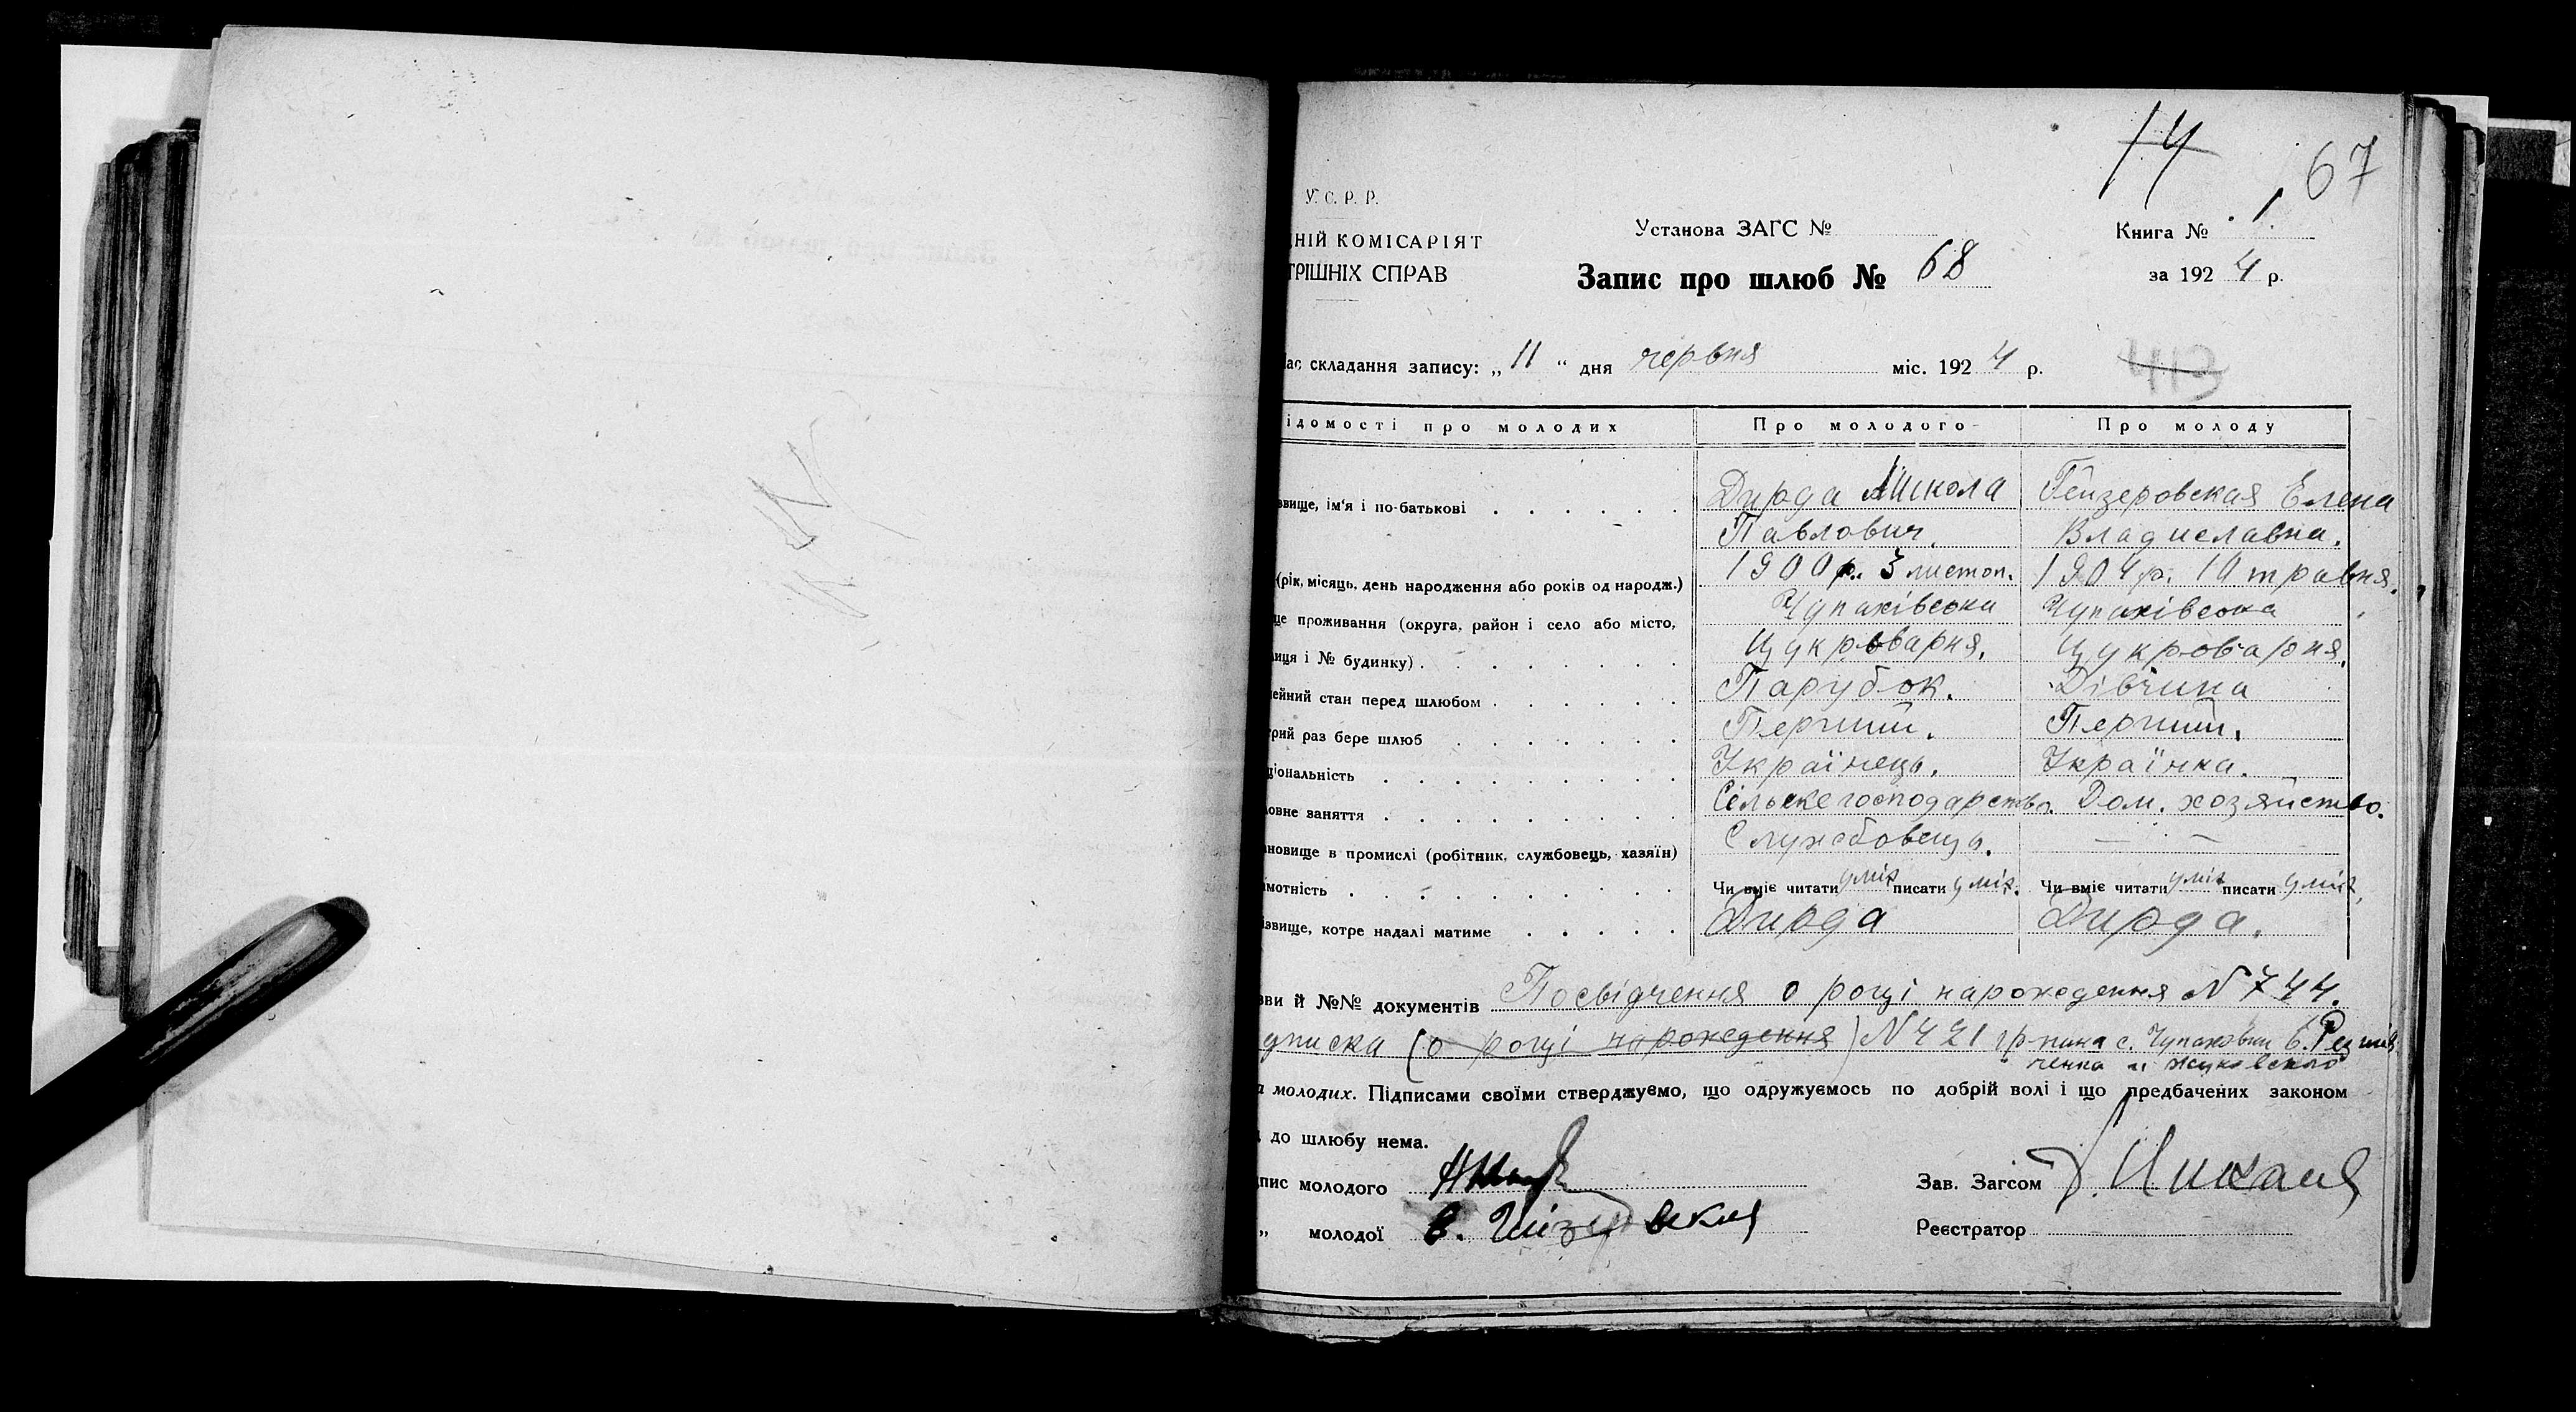 14
67
У. С. Р. Р.
Установа ЗАГС №
Книга № 1.
НІЙ КОМІСАРІЯТ
ТРІШНІХ СПРАВ
Запис про шлюб № 68
за 1924 р.
ас складання запису: „ 11 “ дня червня міс. 1924 р.
413
ідомості про молодих Про молодого Про молоду
звище, ім'я і по-батькові Дирда Микола Гейзеровская Елена
Павлович. Владиславна.
(рік, місяць, день народження або років од народж.) 1900 р. 3 листоп. 1904 р. 10 травня.
це проживання (округа, район і село або місто, Чупахівська Чупахівська
лиця і № будинку) Цукроварня. Цукроварня.
ейний стан перед шлюбом Парубок. Дівчина
трий раз бере шлюб Перший. Перший.
ціональність Українець. Українка.
овне заняття Сільске господарство. Дом. хозяйство.
ановище в промислі (робітник, службовець, хазяїн) Службовець. — —
амотність Чи вміє читати уміє писати уміє. Чи вміє читати уміє писати уміє,
ізвище, котре надалі матиме Дирда Дирда.
зви й №№ документів Посвідчення о році народження N 744.
дписка (о році народження) N 421 гр-нина с. Чупаховки
ченка и Жуковского
молодих. Підписами своїми стверджуємо, що одружуємось по добрій волі і що предбачених законом
до шлюбу нема.
пис молодого
Зав. Загсом
„ молодої
Реєстратор